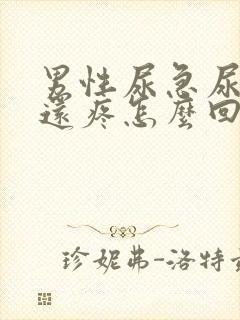 男性尿急尿
還疼怎麼回
珍妮弗-洛特